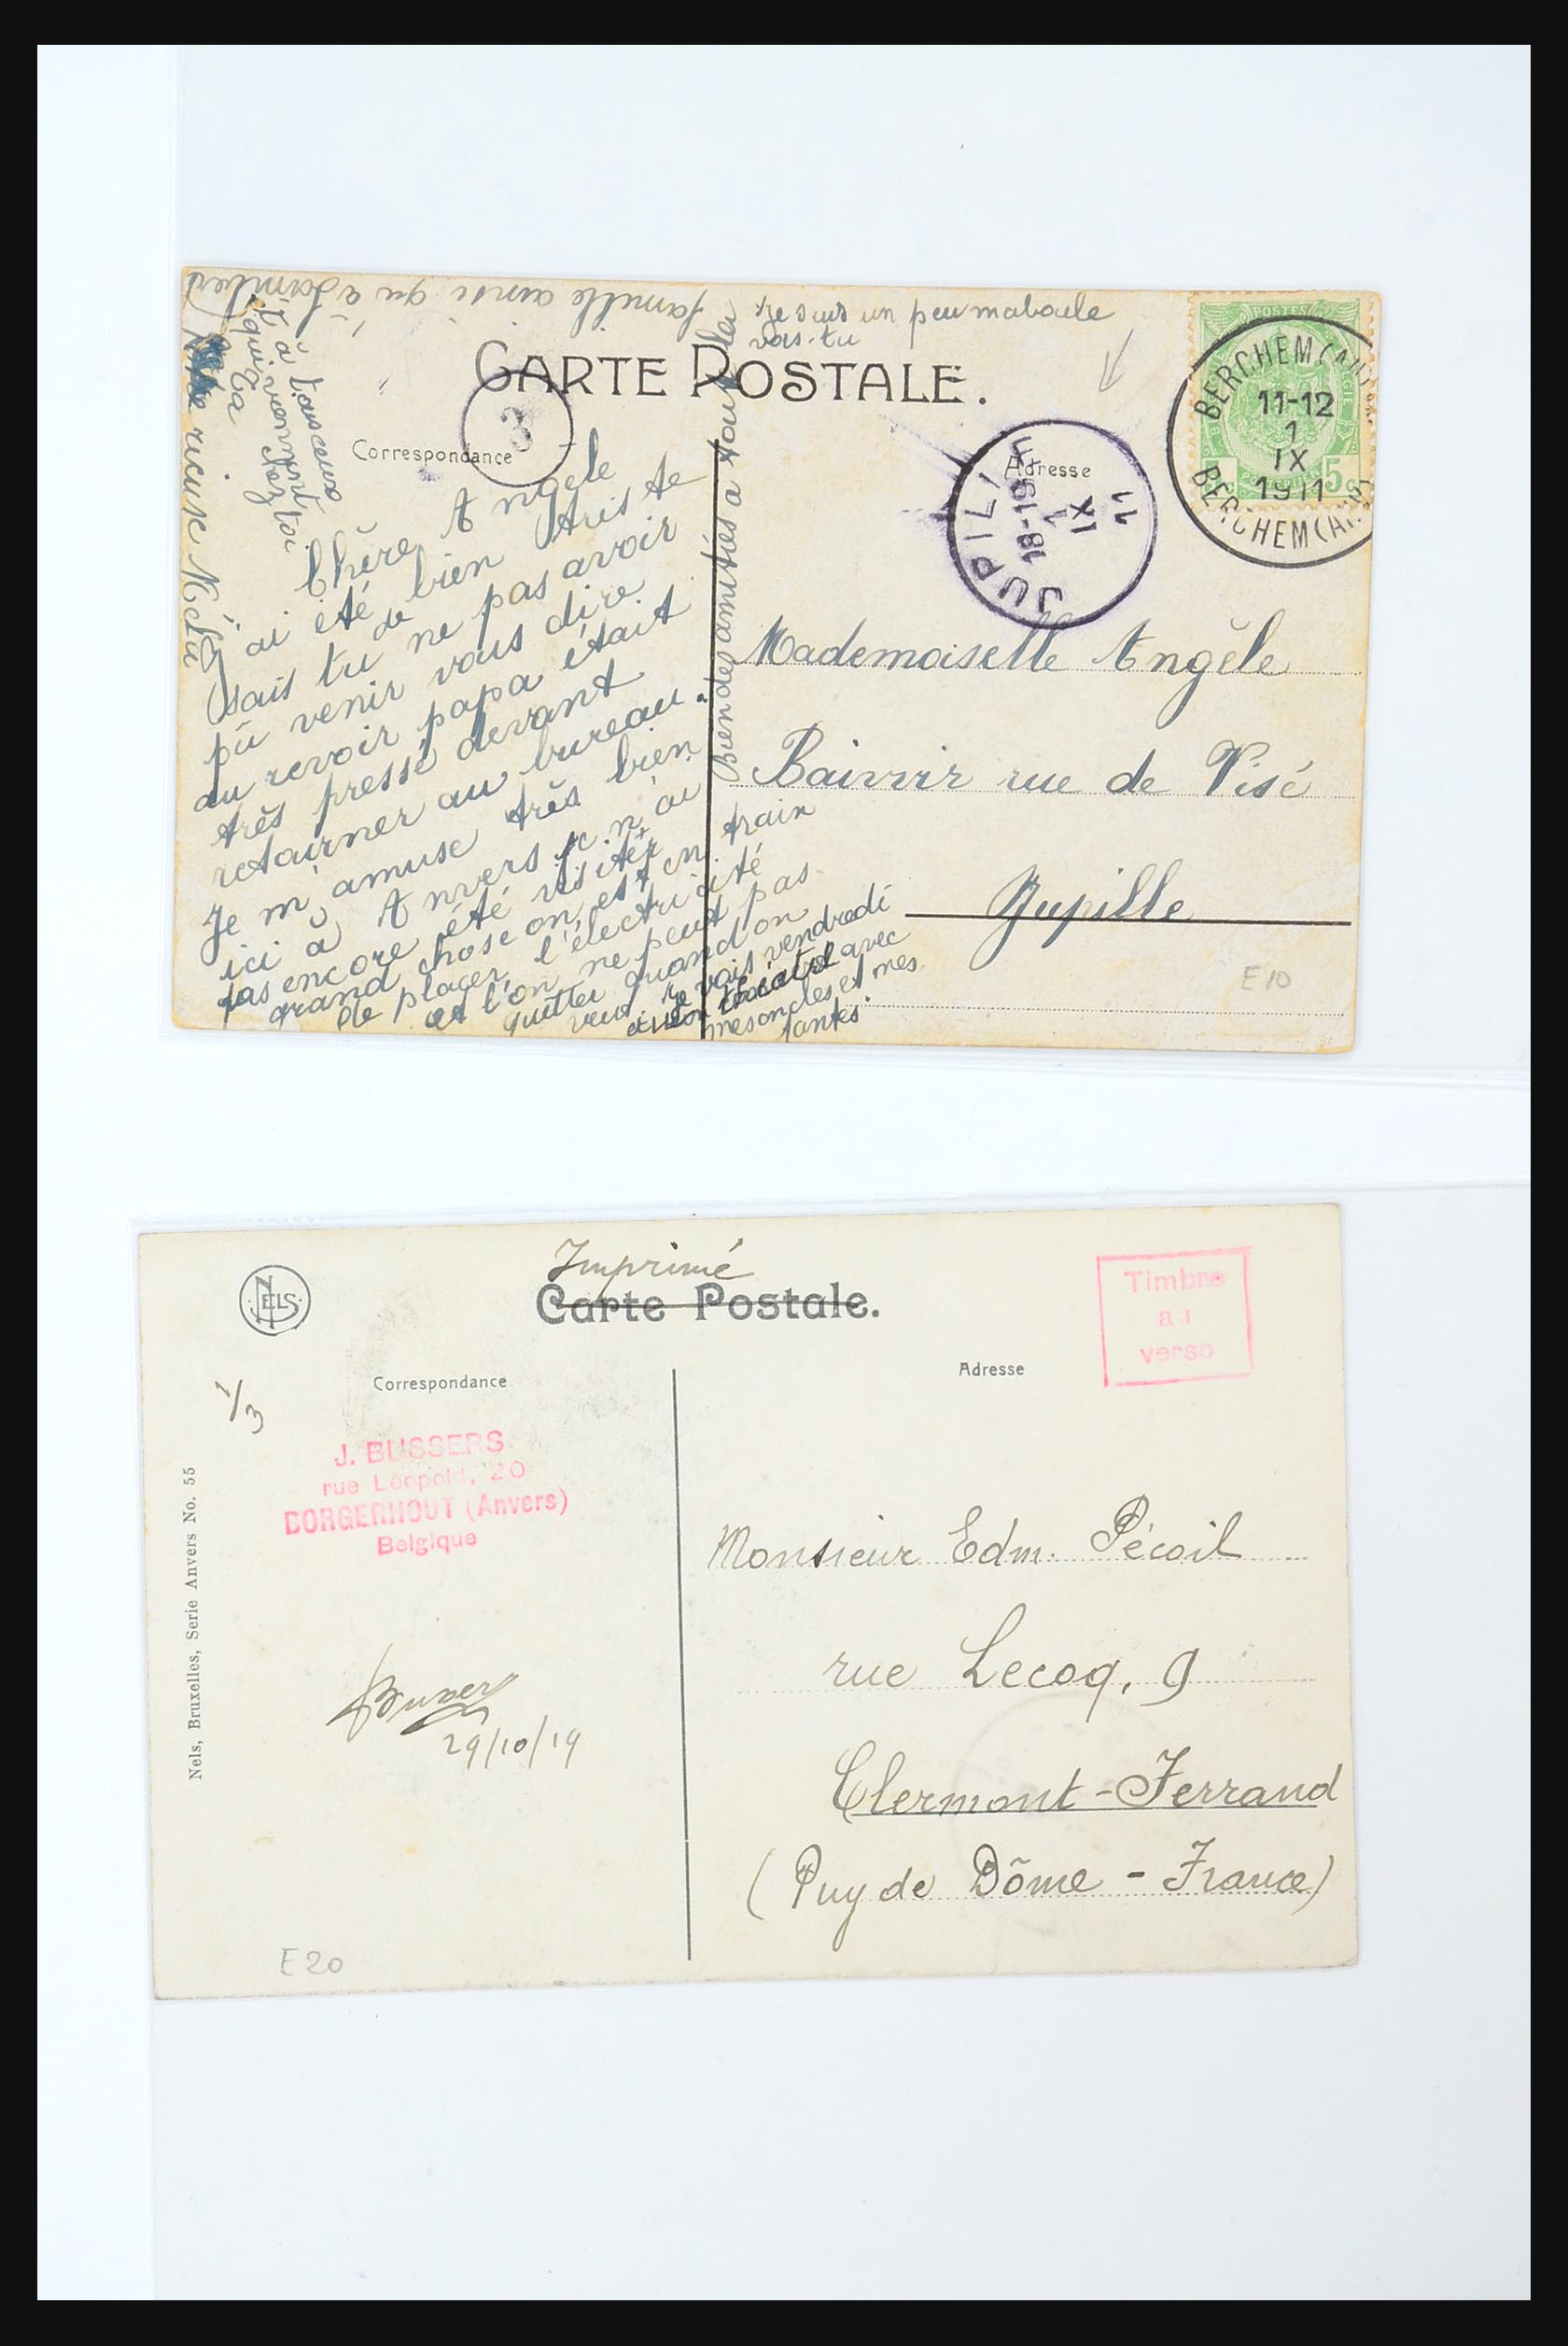 famille ainsi qu'à Jambers)
Je suis un peu maboule
vois-tu
CARTE POSTALE.
3
Correspondance
Adresse
BERCHEM (AN
11-12
1
IX
1911
BERCHEM (AN
POSTES
5c
JUPILLE
18-19
1
IX
11
et à tous ceux
qui viennent
chez toi
Ta
rieuse
Chère Angele
J'ai été bien triste
sais tu de ne pas avoir
pu venir vous dire
au revoir papa était
très pressé devant
retourner au bureau.
Je m'amuse très bien
ici à Anvers je n'ai
pas encore été visiter
grand chose on est en train
de placer l'électricité
et l'on ne peut pas
quitter quand on
veut Je vais vendredi
théatre avec
mes oncles et mes
tantes.
Bien des amitiés à toute la
Mademoiselle Angèle
Baivvir rue de Visé
Jupille
E10
Imprimé
Carte Postale.
NELS
Timbre
au
verso
Correspondance
Adresse
1/3
J. BUSSERS
rue Léopold, 20
BORGERHOUT (Anvers)
Belgique
Nels, Bruxelles, Serie Anvers No. 55
Bussers
29/10/19
Monsieur Edm. Pécoil
rue Lecoq, 9
Clermont-Ferrand
(Puy de Dôme - France)
E20